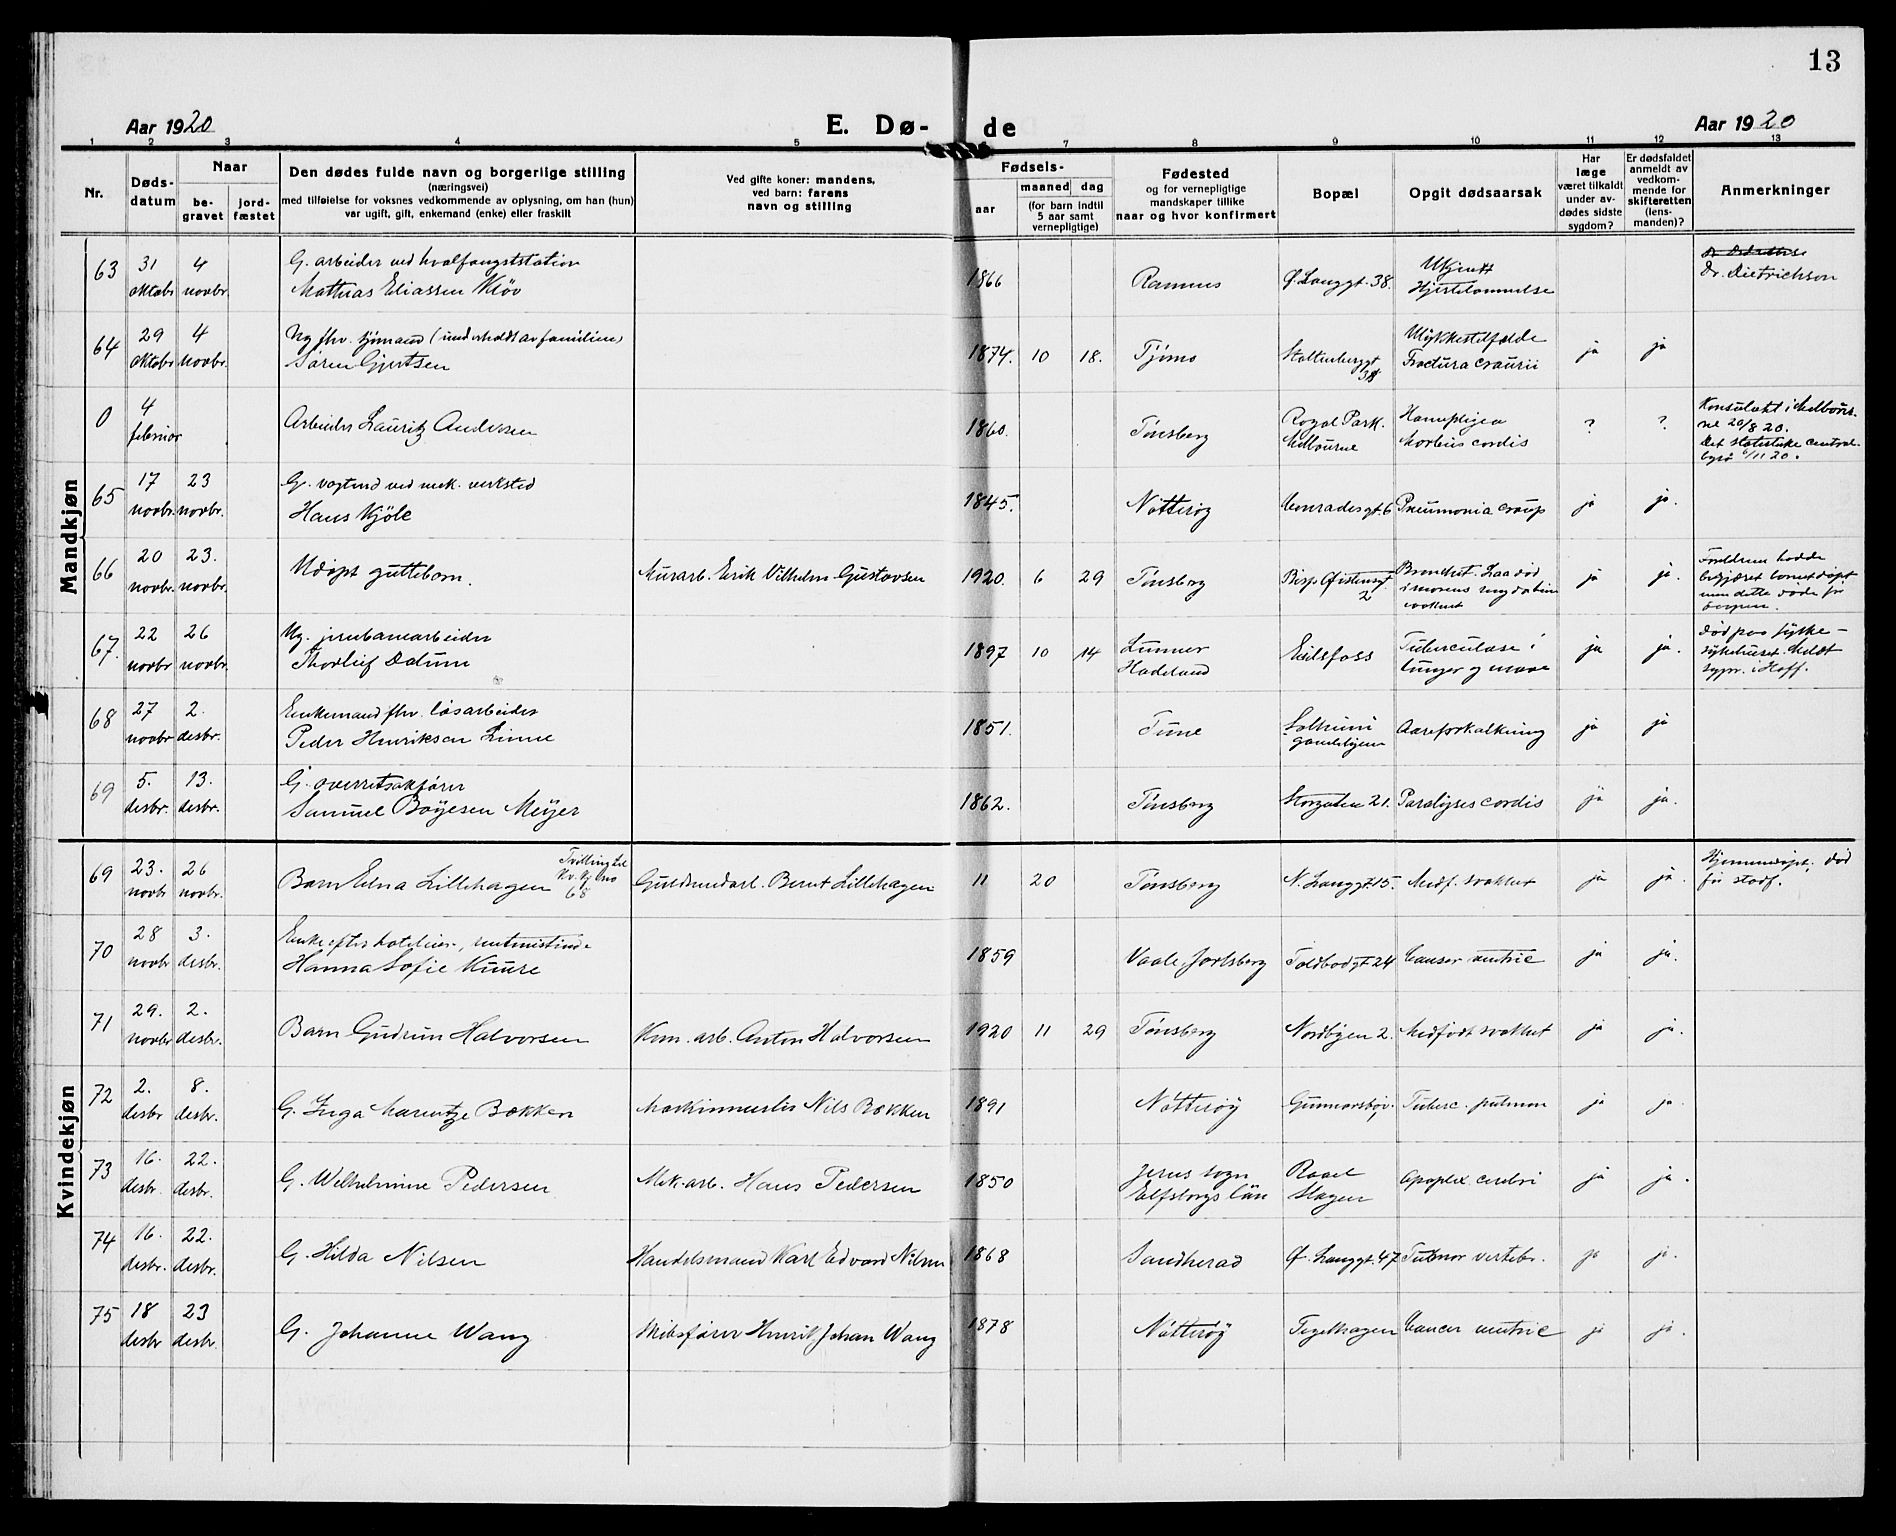 13
Aar 1920 E. Dø- de Aar 1920
1 2 3 4 5 7 8 9 10 11 12 13
Nr.
Døds-
datum
Naar
be-
gravet
jord-
fæstet
Den dødes fulde navn og borgerlige stilling
(næringsvei)
med tilføielse for voksnes vedkommende av oplysning, om han (hun)
var ugift, gift, enkemand (enke) eller fraskilt
Ved gifte koner: mandens,
ved barn: farens
navn og stilling
Fødsels-
aar
maaned dag
(for barn indtil
5 aar samt
vernepligtige)
Fødested
og for vernepligtige
mandskaper tillike
naar og hvor konfirmert
Bopæl
Opgit dødsaarsak
Har
læge
været tilkaldt
under av-
dødes sidste
sygdom?
Er dødsfaldet
anmeldt av
vedkom-
mende for
skifteretten
(lens-
manden)?
Anmerkninger
Mandkjøn
63 31 4 G. arbeider ved hvalfangststation
oktobr novbr. Mathias Eliassen Kløv 1866 Ramnes Ø. Langgt. 38. Ukjent
Hjertelammelse
Dr. Dietrichson
64 29 4 Ug fhv. sjømand (underholdt av familien)
oktobr novbr. Søren Gjertsen 1874. 10 18. Tjømø Stoltenberggt
38 Ulykkestilfælde
Fractura cranii ja ja
0 4
februar Arbeider Lauritz Andersen 1860. Tønsberg Royal Park.
Melbourne
Morbus cordis ? ?
Konsulatet i Melbour-
ne 20/8 20.
Det statistiske central-
byrå 6/11 20.
65 17 23 G. vogtmd ved mek. verksted
novbr. novbr. Hans Kjøle 1845. Nøtterøy Conradisgt. 6 Pneumonia croup ja ja.
66 20 23. Udøpt guttebarn.
novbr. novbr. Murarb. Erik Vilhelm Gustavsen 1920. 6 29 Tønsberg Bisp Øistensgt.
2 Bronchit. Laa død
i morens seng
ja ja. Forældrene hadde
begjæret barnet døpt
men dette døde før
67. 22 26 Ug. jernbanearbeider
novbr novbr. Thorleif Dalum 1897 10 14 Lunner
Hadeland Eidsfoss Tuberculose i
lunger og mave ja ja. Død paa fylke-
sykehuset. Meldt
sypr. i Hoff.
68 27 2. Enkemand fhv. løsarbeider
novbr desbr. Peder Henriksen Linne 1851. Tune Solheim
gamlehjem Aareforkalkning ja ja
69 5. 13. G. overretssakfører
desbr. desbr. Samuel Boyesen Meyer 1862. Tønsberg Storgaten 21. Paralyses cordis ja ja.
Kvindekjøn
69 23. 26 Barn Edna Lillehagen Tvilling til
Kv. kj. no
68
novbr novbr. Guldsmedarb. Bernt Lillehagen 11 20 Tønsberg N. Langgt. 15. Medf. svakhet ja ja. Hjemmedøpt, død
før stadf.
70 28 3. Enke efter hoteleier, rentenistinde
novbr desbr. Hanna Sofie Kuure 1859 Vaale Jarlsberg Toldbodgt 24 Cancer ventric ja ja.
71 29. 2. Barn Gudrun Halvorsen
novbr desbr. Kom. arb. Anton Halvorsen 1920 11 29 Tønsberg Nordbyen 2. Medfødt svakhet ja ja.
72 2. 8. G. Inga Marentze Bakken
desbr desbr. Maskinmester Nils Bakken 1891 Nøtterøy Gunnarsbøv. Tuberc. pulmon ja ja.
73 16. 22. G. Wilhelmine Pedersen
desbr desbr. Mek. arb. Hans Pedersen 1850 Jerns sogn
Elfsborgs län Rael
Slagen Apoplex. cerebri ja ja.
74 16. 22. G. Hilda Nilsen
desbr. desbr. Handelsmand Karl Edvard Nilsen 1868 Sandherad Ø. Langgt. 47 Tubmor vertebr. ja ja.
75 18 23 G. Johanne Wang
desbr desbr. Skibsfører Henrik Johan Wang 1878 Nøtterøy Teglhagen Cancer ventric ja ja.